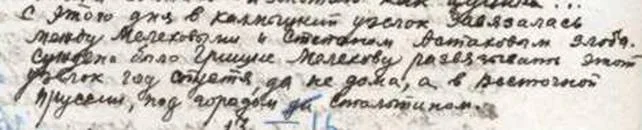 С этого дня в калмыцкий узелок завязалась
между Мелеховыми и Степаном Астаховым злоба.
Суждено было Григорию Мелехову развязывать этот
узелок год спустя, да не дома, а в Восточной
Пруссии, под городом Столыпином.